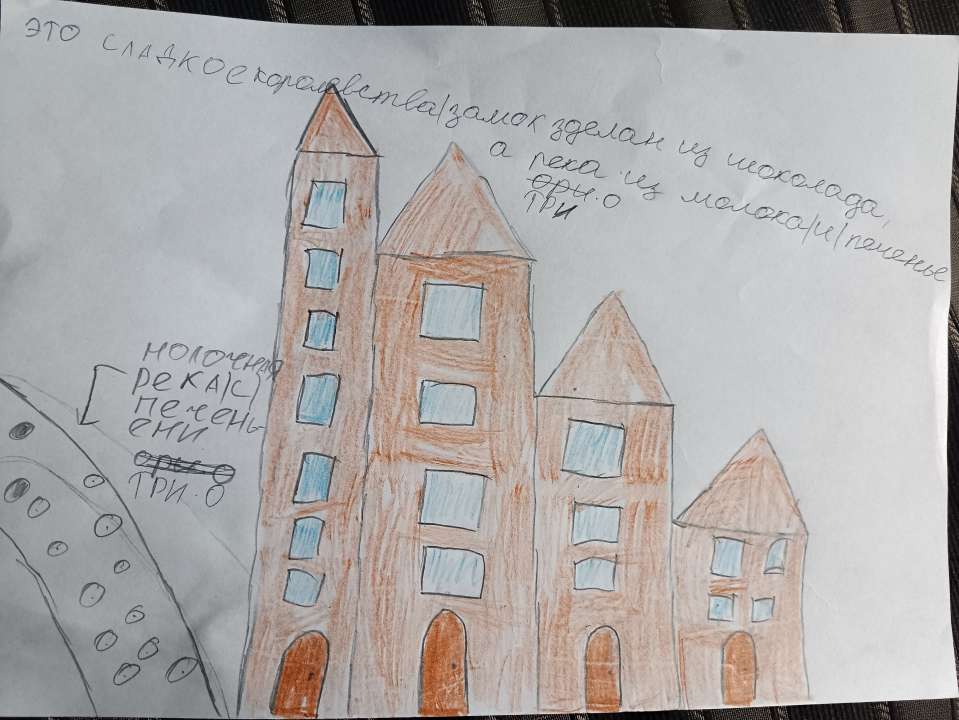 ЭТО СЛАДКОЕ королевства/замок зделан из шоколада,
а река из молока/и/печенье
ори.о
ТРИ
молочная
РЕКА/С/
ПЕЧЕНЬ-
ЕНИ
ори о
ТРИ.О